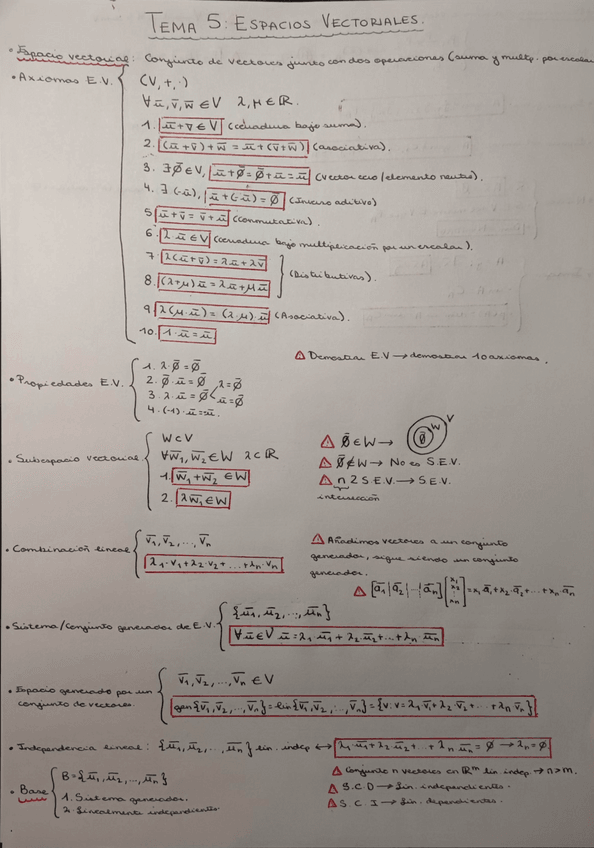 TEMA 5: ESPACIOS VECTORIALES.
• Espacio vectorial: Conjunto de vectores junto con dos operaciones (suma y multp. por escalar
• Axiomas E.V.
(V, +, ·)
∀ū, v̄, w̄ ∈ V λ, μ ∈ ℝ.
1. ū+v̄ ∈ V (cerradura bajo suma).
2. (ū+v̄)+w̄ = ū+(v̄+w̄) (asociativa).
3. ∃ 0̄ ∈ V, ū+0̄ = 0̄+ū = ū (vector cero/elemento neutro).
4. ∃ (-ū), ū+(-ū) = 0̄ (Inverso aditivo)
5. ū+v̄ = v̄+ū (conmutativa).
6. λ·ū ∈ V (cerradura bajo multiplicación por un escalar).
7. λ(ū+v̄) = λū+λv̄
8. (λ+μ)ū = λū+μū
(Distributivas).
9. λ(μ·ū) = (λ·μ)·ū (Asociativa).
10. 1·ū = ū
⚠ Demostrar E.V → demostrar 10 axiomas.
• Propiedades E.V.
1. λ·0̄ = 0̄
2. 0̄·ū = 0̄
3. λ·ū = 0̄ λ=0̄ ū=0̄
4. (-1)·ū = -ū.
• Subespacio vectorial
W⊂V
∀w̄₁, w̄₂ ∈ W λ ⊂ ℝ
1. w̄₁+w̄₂ ∈ W
2. λw̄₁ ∈ W
⚠ 0̄ ∈ W → 0̄ W V
⚠ 0̄ ∉ W → No es S.E.V.
⚠ ∩ 2 S.E.V. → S.E.V.
intersección
• Combinación lineal
v̄₁, v̄₂, ..., v̄ₙ
λ₁·v₁+λ₂·v₂+...+λₙ·vₙ
⚠ Añadimos vectores a un conjunto
generador, sigue siendo un conjunto
generador.
⚠ [ā₁|ā₂|---|āₙ] [x₁ x₂ ... xₙ] = x₁·ā₁+x₂·ā₂+...+xₙ·āₙ
• Sistema/Conjunto generador de E.V.
{ū₁, ū₂, ..., ūₙ}
∀ū∈V ū = λ₁·ū₁+λ₂·ū₂+...+λₙ·ūₙ
• Espacio generado por un
conjunto de vectores.
v̄₁, v̄₂, ..., v̄ₙ ∈ V
gen{v̄₁, v̄₂, ..., v̄ₙ} = lin{v̄₁, v̄₂, ..., v̄ₙ} = {v: v=λ₁·v̄₁+λ₂·v̄₂+...+λₙ·v̄ₙ}
• Independencia lineal: {ū₁, ū₂, ..., ūₙ} lin. indep ↔ λ₁·ū₁+λ₂·ū₂+...+λₙ·ūₙ = 0̸ → λₙ=0̸.
• Base
B={ū₁, ū₂, ..., ūₙ}
1. Sistema generador.
2. Linealmente independientes.
⚠ Conjunto n vectores en ℝᵐ lin. indep → n>m.
⚠ S.C.D → Lin. independientes.
⚠ S.C.I → Lin. dependientes.